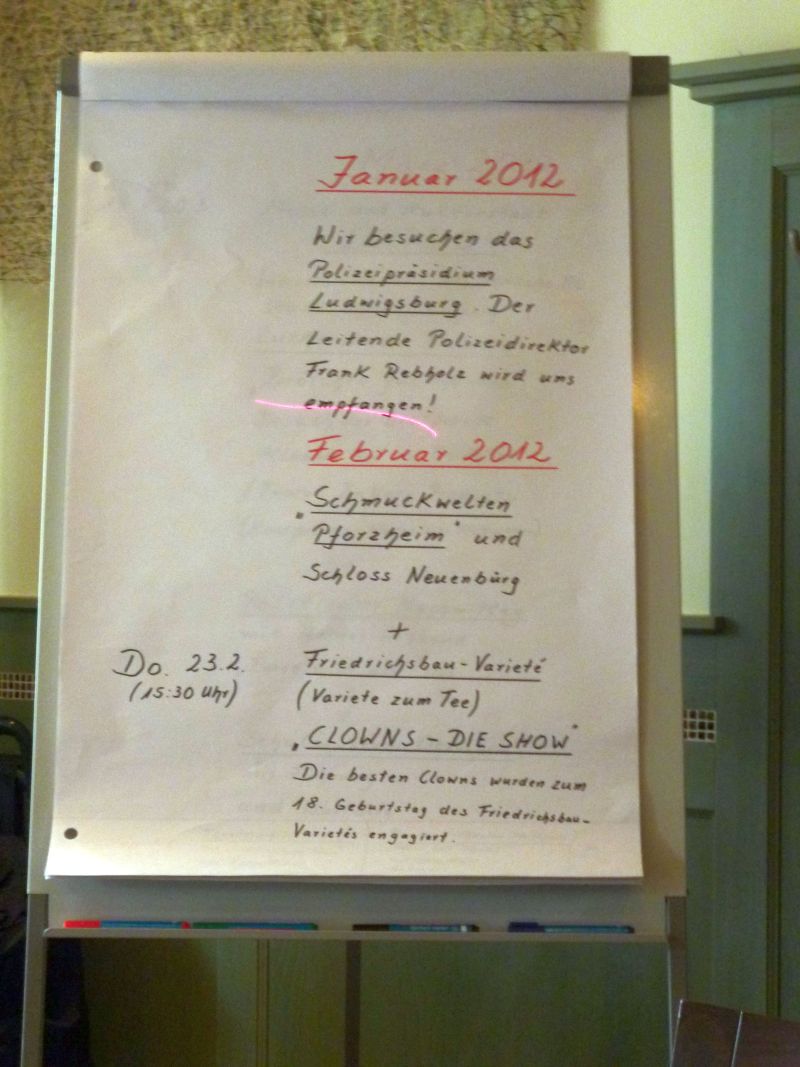 Januar 2012
Wir besuchen das
Polizeipräsidium
Ludwigsburg. Der
Leitende Polizeidirektor
Frank Rebholz wird uns
empfangen!
Februar 2012
„Schmuckwelten
Pforzheim" und
Schloss Neuenbürg
+
Do. 23.2. Friedrichsbau-Varieté
(15:30 Uhr) (Variete zum Tee)
„CLOWNS - DIE SHOW"
Die besten Clowns wurden zum
18. Geburtstag des Friedrichsbau-
Varietés engagiert.